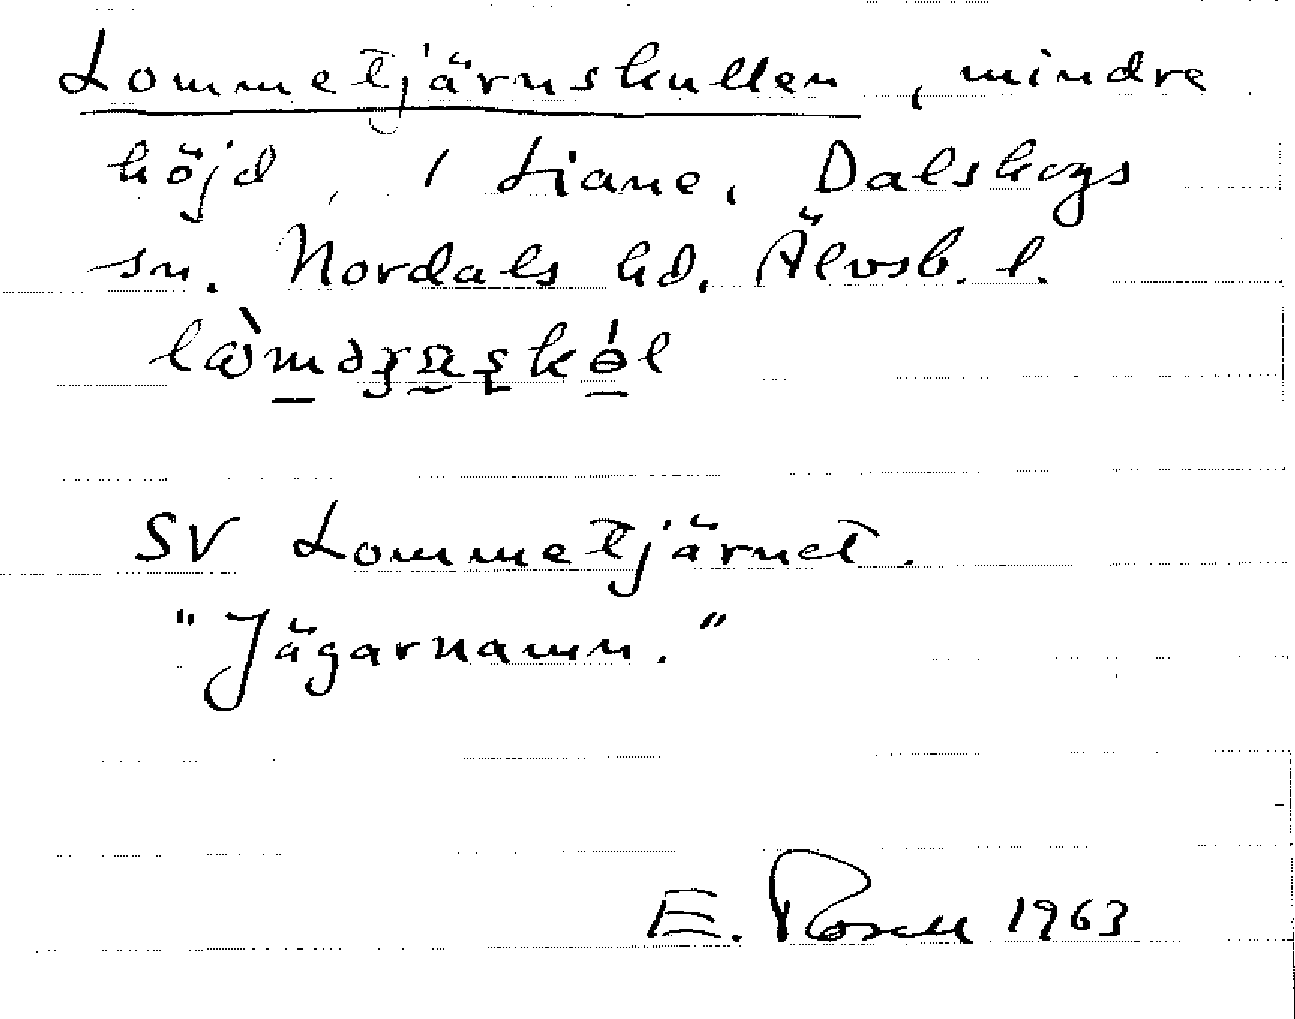 Lommetjärnskullen, mindre
höjd, i Liane, Dalskogs
sn. Nordals hd. Älvsb. l.
SV Lommetjärnet.
"Jägarnamn."
E. Rosell 1963